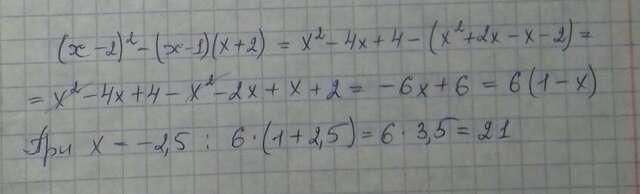 (x-2)² - (x-1)(x+2) = x² - 4x + 4 - (x² + 2x - x - 2) =
= x² - 4x + 4 - x² - 2x + x + 2 = -6x + 6 = 6(1 - x)
При x - -2,5 : 6·(1 + 2,5) = 6·3,5 = 21